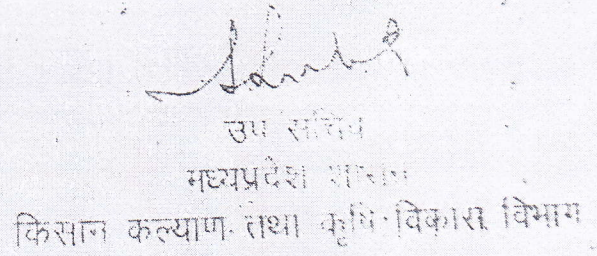 उप सचिव
मध्यप्रदेश शासन
किसान कल्याण तथा कृषि विकास विभाग